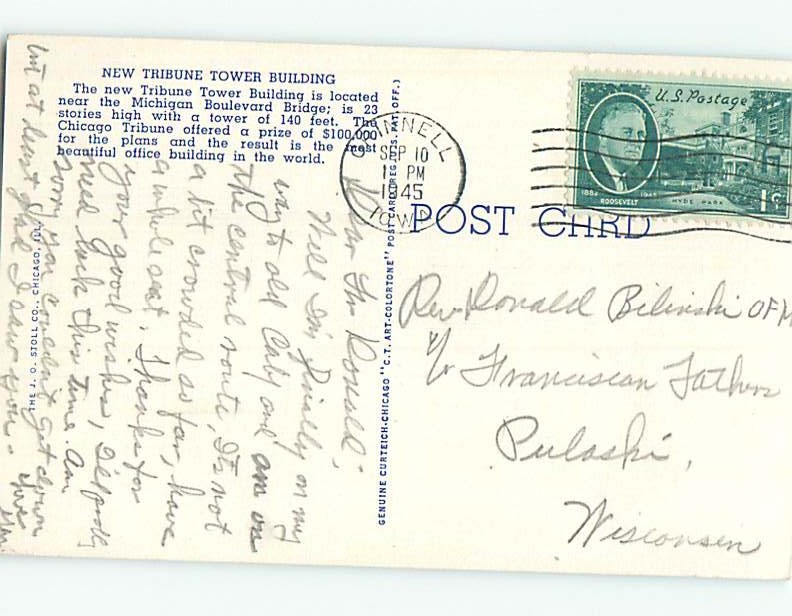 NEW TRIBUNE TOWER BUILDING
The new Tribune Tower Building is located
near the Michigan Boulevard Bridge; is 23
stories high with a tower of 140 feet. The
Chicago Tribune offered a prize of $100,000
for the plans and the result is the most
beautiful office building in the world.
THE J. O. STOLL CO., CHICAGO, ILL.
GENUINE CURTEICH-CHICAGO "C.T. ART-COLORTONE" POST CARD (REG. U.S. PAT. OFF.)
GRINNELL
SEP 10
PM
1945
IOWA
U.S. Postage
1882 1945
ROOSEVELT
HYDE PARK
1¢
POST CARD
Rev. Ronald Bilinski OFM
c/o Franciscan Fathers
Pulaski,
Wisconsin
Dear Fr Ronald;
Well I'm finally on my
way to old Caly and am on
the central route, It's not
a bit crowded so far, have
a whole seat. Thanks for
your good wishes,
need luck this time. Am
sorry you couldn't get down
but at least glad I saw you.